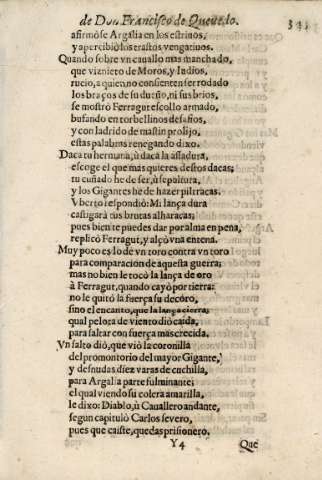 de Don Francisco de Queuedo.
afirmòse Argalia en los estriuos,
y apercibiò los trastos vengatiuos.
Quando sobre vn cauallo mas manchado,
que viznieto de Moros, y Indios,
rucio, a quien no consienten ser rodado
los braços de su dueño, ni sus brios,
se mostrò Ferragut escollo armado,
bufando en torbellinos desafios,
y con ladrido de mastin prolijo,
estas palabras renegando dixo.
Daca tu hermana, ù dacà la assadura,
escoge el que mas quieres destos dacas;
tu cuñado he de ser, ù sepultura,
y los Gigantes he de hazer piltracas.
Vberto respondiò: Mi lança dura
castigarà tus brutas alharacas;
pues bien te puedes dar por alma en pena,
replicò Ferragut, y alçò vna entena.
Muy poco es lo de vn toro contra vn toro
para comparacion de aquesta guerra;
mas no bien le tocò la lança de oro
à Ferragut, quando cayò por tierra:
no le quitò la fuerça su decoro,
sino el encanto, que la lança cierra;
qual pelota de viento diò caida,
para saltar con fuerça mas crecida.
Vn salto diò, que viò la coronilla
del promontorio del mayor Gigante,
y desnudas diez varas de cuchilla,
para Argalia parte fulminante;
el qual viendo su colera amarilla,
le dixo: Diablo, ù Cauallero andante,
segun capitulò Carlos seuero,
pues que caiste, quedas prisionero.
Y4 Que